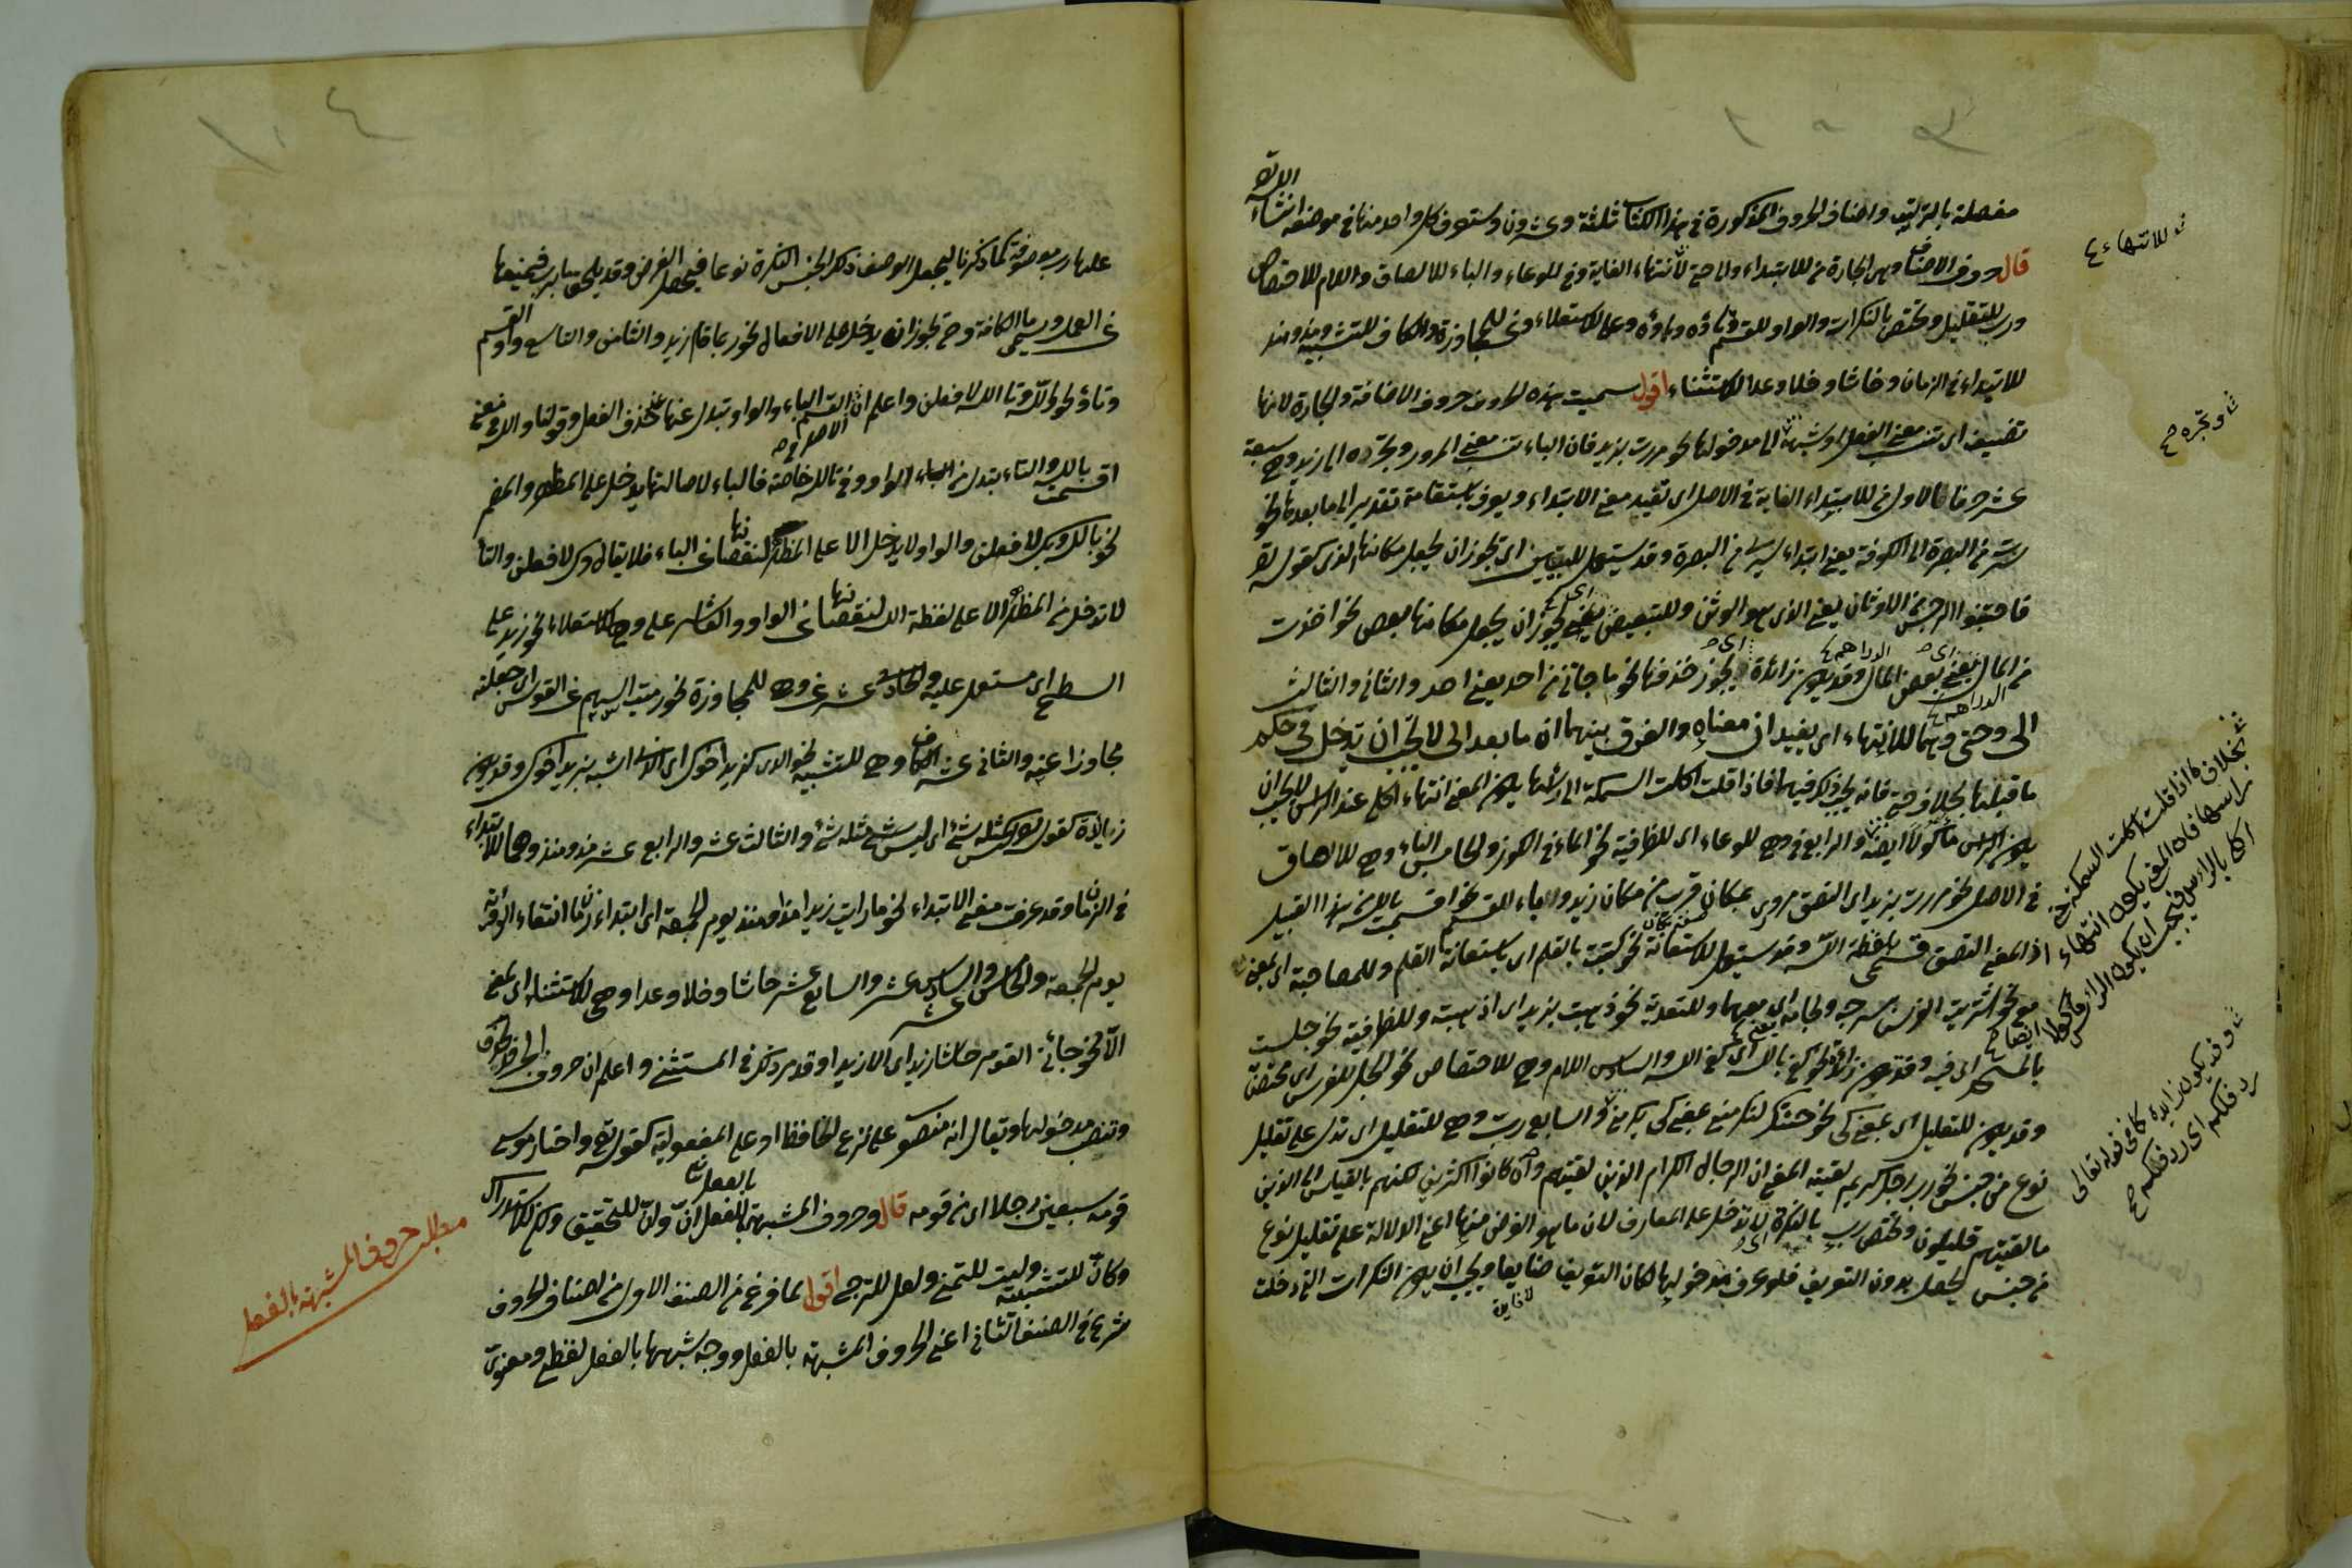 ١٠٣
مفصلة بالترتيب واصناف الحروف المذكورة فى هذا الكتاب ثلثة وعشرون وستعرف كل واحد منها فى موضعه انشاء الله تع
قال حروف الاضافة وهى الجارة من للابتداء والى وحتى لانتهاء الغاية وفى للوعاء والباء للالصاق واللام للاختصاص
ورب للتقليل وتختص بالنكرات والواو للقسم وتاؤه وباؤه وعلى للاستعلاء وعن للمجاوزة والكاف للتشبيه ومذ ومنذ
للابتداء فى الزمان وحاشا وخلا وعدا للاستثناء اقول سميت هذه الحروف حروف الاضافة والجارة لانها
تضيف اى تنسب معنى الفعل او شبهه الى مدخولها نحو مررت بزيد فان الباء تنسب معنى المرور وتجره الى زيد وهى سبعة
عشر حرفا الاول من للابتداء الغاية فى الاصل اى تفيد معنى الابتداء ويعرف باستقامة تقدير الى ما بعدها نحو
سرت من البصرة الى الكوفة يعنى ابتداء سيرى من البصرة وقد يستعمل للتبيين اى تجوز ان يجعل مكانها الذى كقوله تع
فاجتنبوا الرجس من الاوثان يعنى الذى هو الوثن وللتبعيض يعنى يجوز ان يجعل مكانها بعض نحو اخذت
من المال يعنى بعض المال وقد يكون زائدة اى يجوز حذفها نحو ما جائنى من احد يعنى احد والثانى والثالث
الى وحتى وهما للانتهاء اى يفيدان معناه والفرق بينهما ان ما بعد الى لا يجب ان تدخل فى حكم
ما قبلها بخلاف حتى فانه يجب ذكر فيها فاذا قلت اكلت السمكة الى رأسها يكون المعنى انتهاء اكلى عند الرأس لا يجب ان
يكون الرأس مأكولا ايضا والرابع فى وهى للوعاء اى للظرفية نحو الماء فى الكوز والخامس الباء وهى للالصاق
فى الاصل نحو مررت بزيد اى التصق مرورى بمكان قرب من مكان زيد والباء للقسم نحو اقسمت بالله من هذا القبيل
اذ المعنى التصق قسمى بلفظة الله وقد يستعمل للاستعانة نحو كتبت بالقلم اى باستعانة القلم وللمصاحبة اى بمعنى
مع نحو اشتريت الفرس بسرجه ولجامه اى معهما وللتعدية نحو ذهبت بزيد اى اذهبته وللظرفية نحو جلست
بالمسجد اى فيه وقد تكون زائدة نحو كفى بالله اى كفى الله والسادس اللام وهى للاختصاص نحو الجل للفرس اى مختص
وقد يكون للتعليل اى بمعنى كى نحو جئتك لتكرمنى بمعنى كى تكرمنى والسابع رب وهى للتقليل اى تدل على تقليل
نوع من جنس نحو رب رجل كريم لقيته المعنى ان الرجال الكرام الذين لقيتهم وان كانوا اكثرين لكنهم بالقياس الى الذين
ما لقيتهم قليلون وتختص رب بالنكرة اى لا تدخل على المعارف لان ما هو الغرض منها اعنى الدلالة على تقليل نوع
من جنس يحصل بدون التعريف فلو عرف مدخولها لكان التعريف ضايعا ويجب ان يكون النكرات التى دخلت
للانتهاء
وتجره
بخلاف ما اذا قلت اكلت السمكة حتى
رأسها فان المعنى يكون انتهاء
اكلى بالرأس فيجب ان يكون الرأس مأكولا ايضا
وقد يكون زايدة كما فى قوله تعالى
ردف لكم اى ردفكم
١٠٤
عليها رب موصوفة كما ذكرنا ليجعل الوصف ذلك الجنس النكرة نوعا فيحصل الغرض وقد يلحق ما برب فيمنعها
عن العمل ويسمى ما الكافة وح تجوز ان يدخل على الافعال نحو ربما قام زيد والثامن والتاسع واو القسم
وتاؤه نحو والله وتالله لافعلن واعلم ان الاصل فى القسم الباء والواو تبدل عنها بحذف الفعل وقولنا والله فى معنى
اقسمت بالله والتاء تبدل من الواو وفى تالله خاصة فالباء لاصالتها يدخل على المظهر والمضمر
نحو بالله وبك لافعلن والواو لا يدخل الا على المظهر لنقصانها عن الباء فلا يقال وك لافعلن والتاء
لا تدخل من المظهر الا على لفظة الله لنقصانها عن الواو والعاشر على وهى للاستعلاء نحو زيد على
السطح اى مستعمل عليه والحادى عشر عن وهى للمجاوزة نحو رميت السهم عن القوس اى جعلته
مجاوزا عنه والثانى عشر الكاف وهى للتشبيه نحو الذى كزيد اخوك اى الذى اشبه بزيد اخوك وقد يكون
زيادة كقوله تع ليس كمثله شئ اى ليس شئ مثله شئ والثالث عشر والرابع عشر مذ ومنذ وهما للابتداء
فى الزمان وقد عرفت معنى الابتداء نحو ما رايت زيدا مذ او منذ يوم الجمعة اى ابتداء زمان انتفاء الرؤية
يوم الجمعة والخامس والسادس عشر والسابع عشر حاشا وخلا وعدا وهى للاستثناء اى بمعنى
الا نحو جائنى القوم حاشا زيد اى الا زيدا وقد مر ذكره فى المستثنى واعلم ان حروف الجر قد تحذف
وتنصب مدخولها ويقال انه منصوب على نزع الخافض او على المفعولية كقوله تع واختار موسى
قومه سبعين رجلا اى من قومه قال وحروف المشبهة بالفعل ان وان للتحقيق ولكن للاستدراك
وكان للتشبيه وليت للتمنى ولعل للترجى اقول لما فرغ من الصنف الاول من اصناف الحروف
شرع فى الصنف الثانى اعنى الحروف المشبهة بالفعل ووجه شبهها بالفعل لفظى ومعنوى
مطلب حروف المشبهة بالفعل